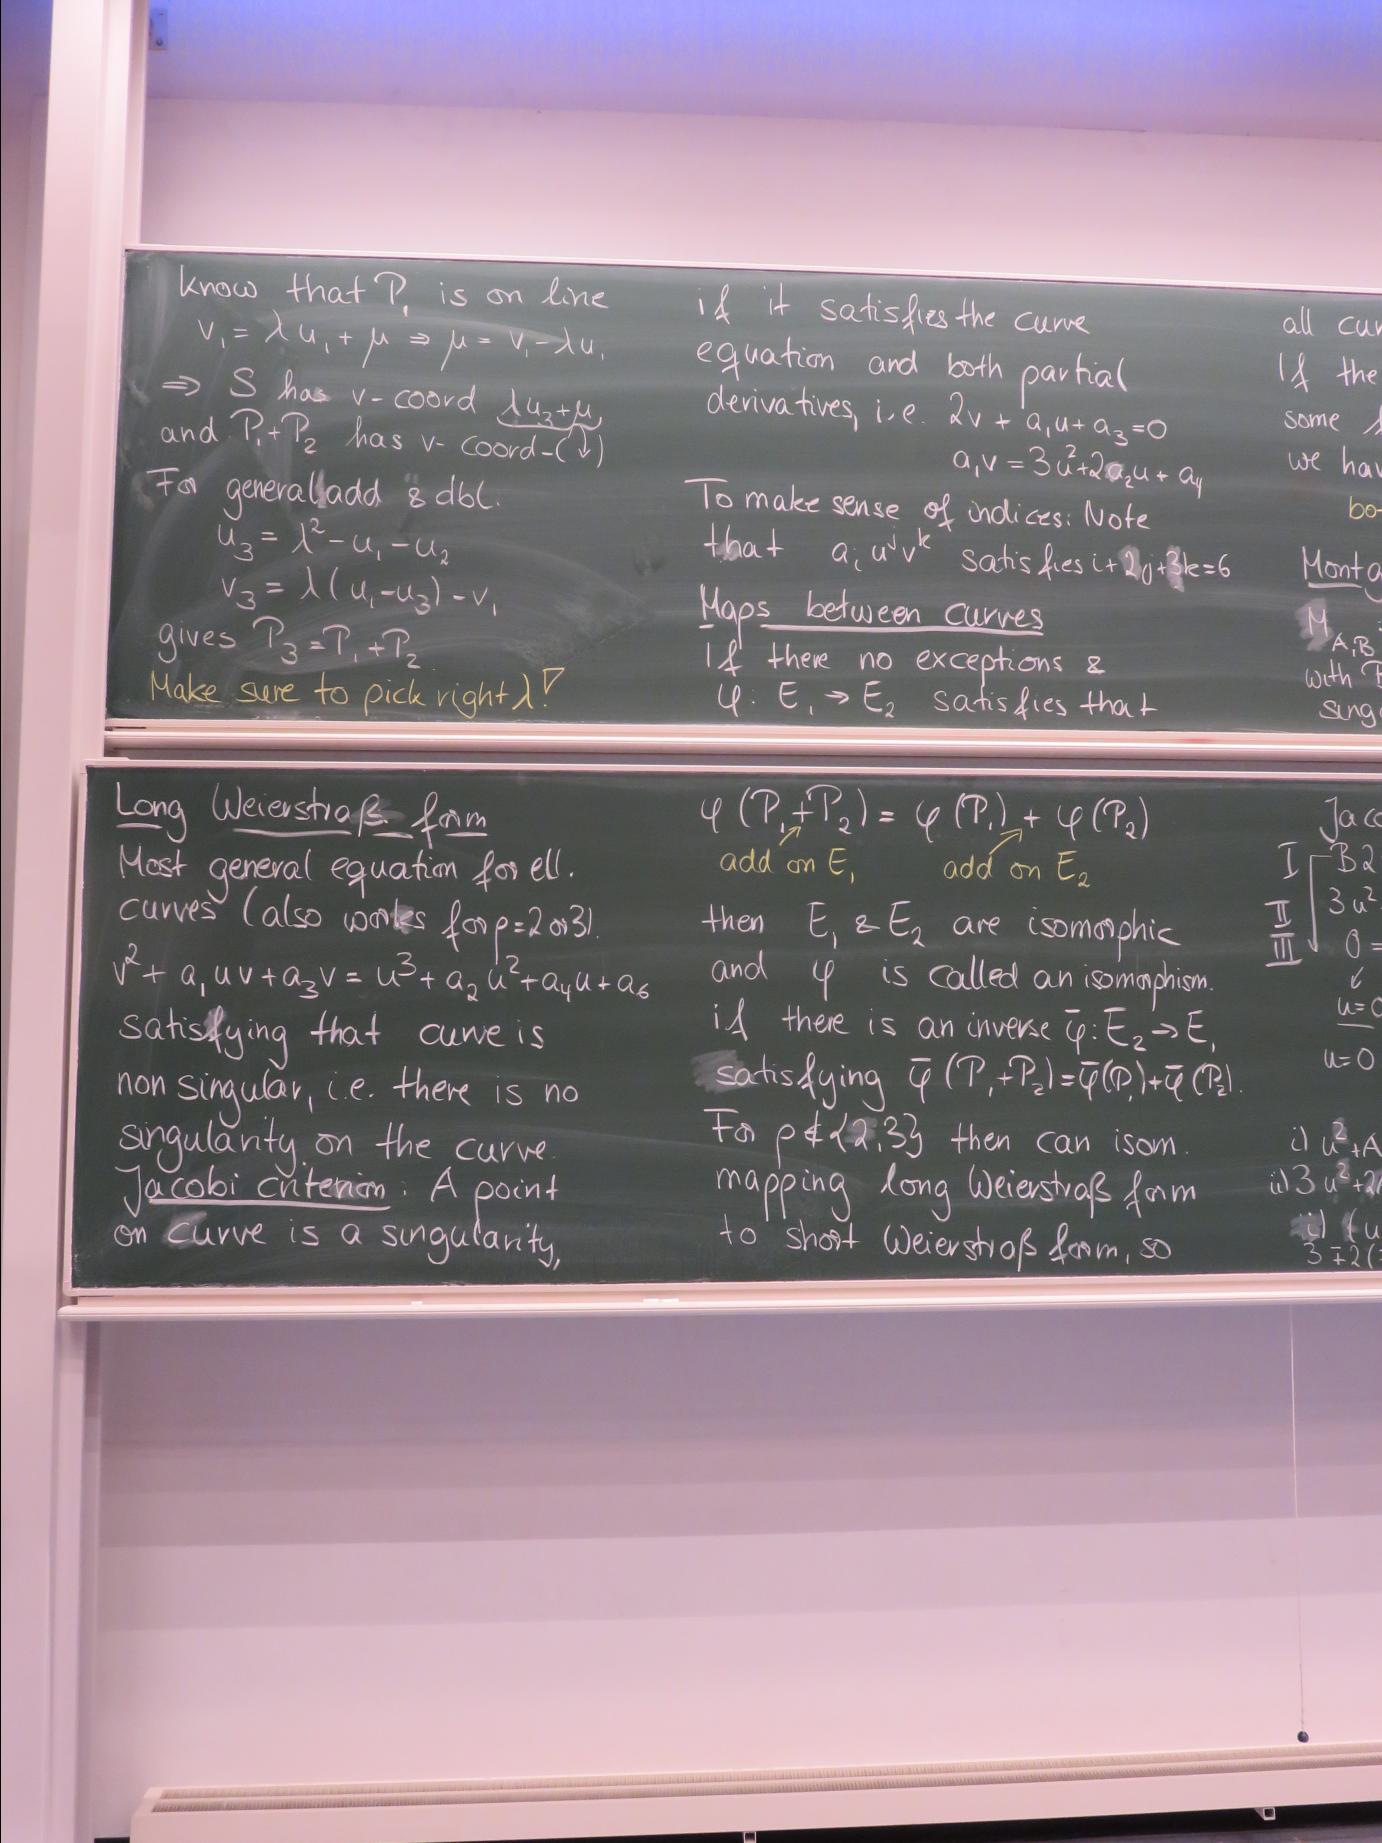 know that P₁ is on line
v₁ = λu₁ + μ ⇒ μ = v₁ - λu₁
⇒ S has v-coord λu₃+μ
and P₁+P₂ has v-coord -(↓)
For general add & dbl.
u₃ = λ² - u₁ - u₂
v₃ = λ(u₁-u₃) - v₁
gives P₃ = P₁ + P₂
Make sure to pick right λ!
Long Weierstraß form
Most general equation for ell.
curves (also works for p=2 or 3).
v² + a₁uv + a₃v = u³ + a₂u² + a₄u + a₆
satisfying that curve is
non singular, i.e. there is no
singularity on the curve.
Jacobi criterion: A point
on curve is a singularity,
if it satisfies the curve
equation and both partial
derivatives, i.e. 2v + a₁u + a₃ = 0
a₁v = 3u² + 2a₂u + a₄
To make sense of indices: Note
that aᵢuʲvᵏ satisfies i+2j+3k=6
Maps between curves
If there no exceptions &
φ: E₁ → E₂ satisfies that
φ(P₁+P₂) = φ(P₁) + φ(P₂)
add on E₁ add on E₂
then E₁ & E₂ are isomorphic
and φ is called an isomorphism.
if there is an inverse φ̄: E₂ → E₁
satisfying φ̄(P₁+P₂) = φ̄(P₁) + φ̄(P₂).
For p ∉ {2,3} then can isom.
mapping long Weierstraß form
to short Weierstraß form, so
all cur
If the
some
we hav
bo
Montg
M A,B
with B
sing
Jaco
I B2
II 3u²
III 0 =
u=0
u=0
i) u²+A
ii) 3u²+2A
i) (u
3∓2(